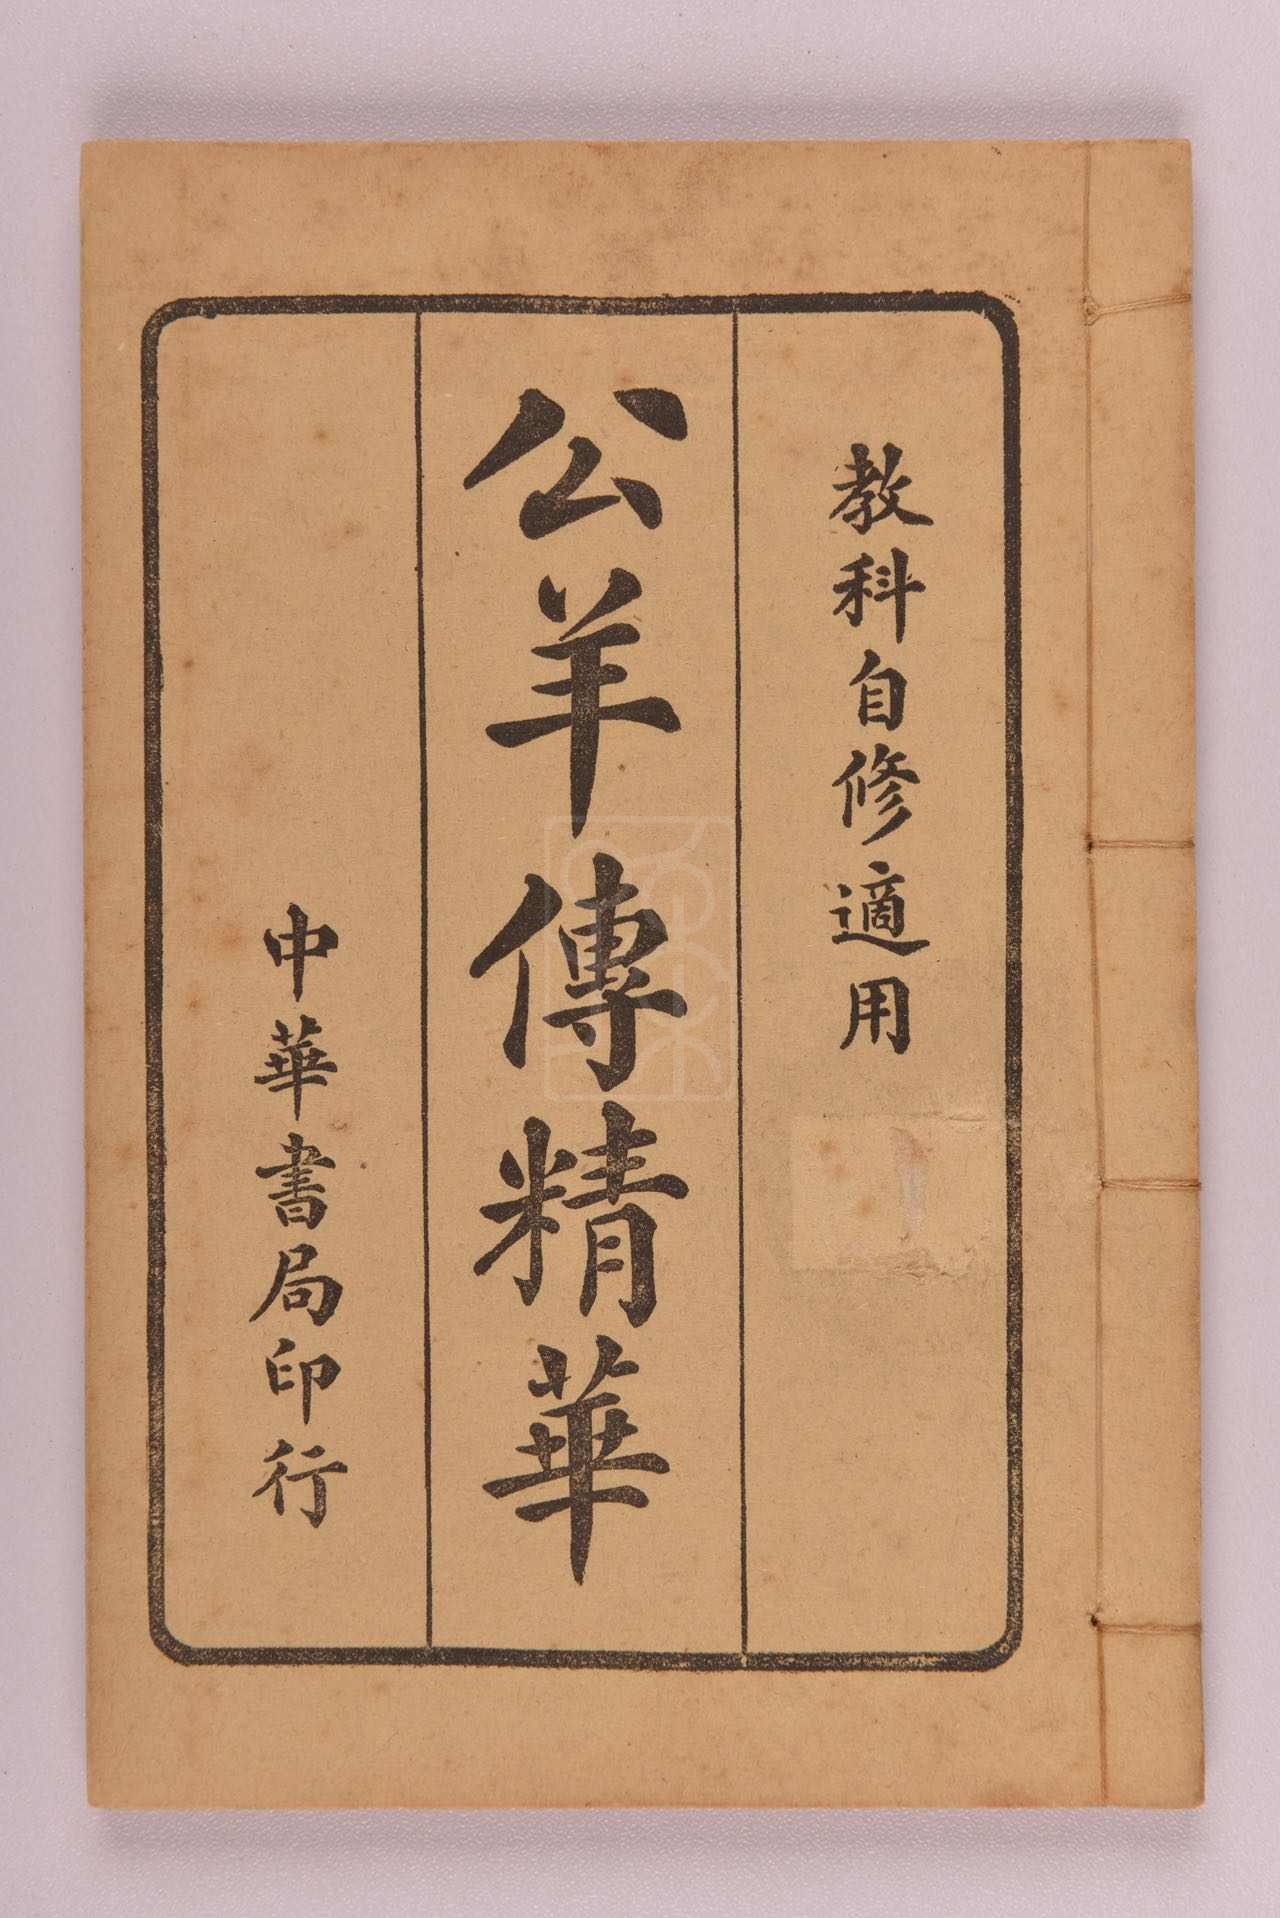 教科自修適用
公羊傳精華
中華書局印行